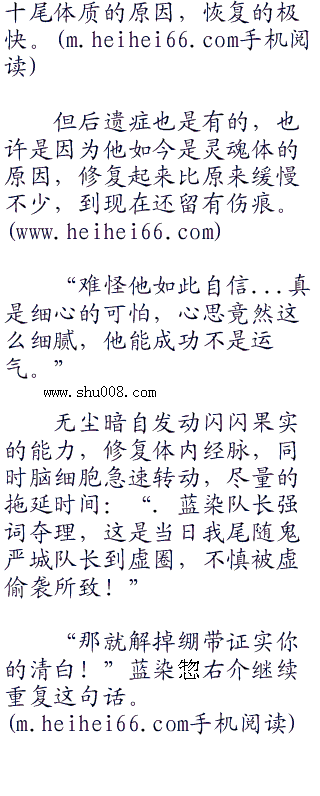 十尾体质的原因，恢复的极
快。(m.heihei66.com手机阅
读)
但后遗症也是有的，也
许是因为他如今是灵魂体的
原因，修复起来比原来缓慢
不少，到现在还留有伤痕。
(www.heihei66.com)
“难怪他如此自信...真
是细心的可怕，心思竟然这
么细腻，他能成功不是运
气。”
www.shu008.com
无尘暗自发动闪闪果实
的能力，修复体内经脉，同
时脑细胞急速转动，尽量的
拖延时间：“．蓝染队长强
词夺理，这是当日我尾随鬼
严城队长到虚圈，不慎被虚
偷袭所致！”
“那就解掉绷带证实你
的清白！”蓝染惣右介继续
重复这句话。
(m.heihei66.com手机阅读)